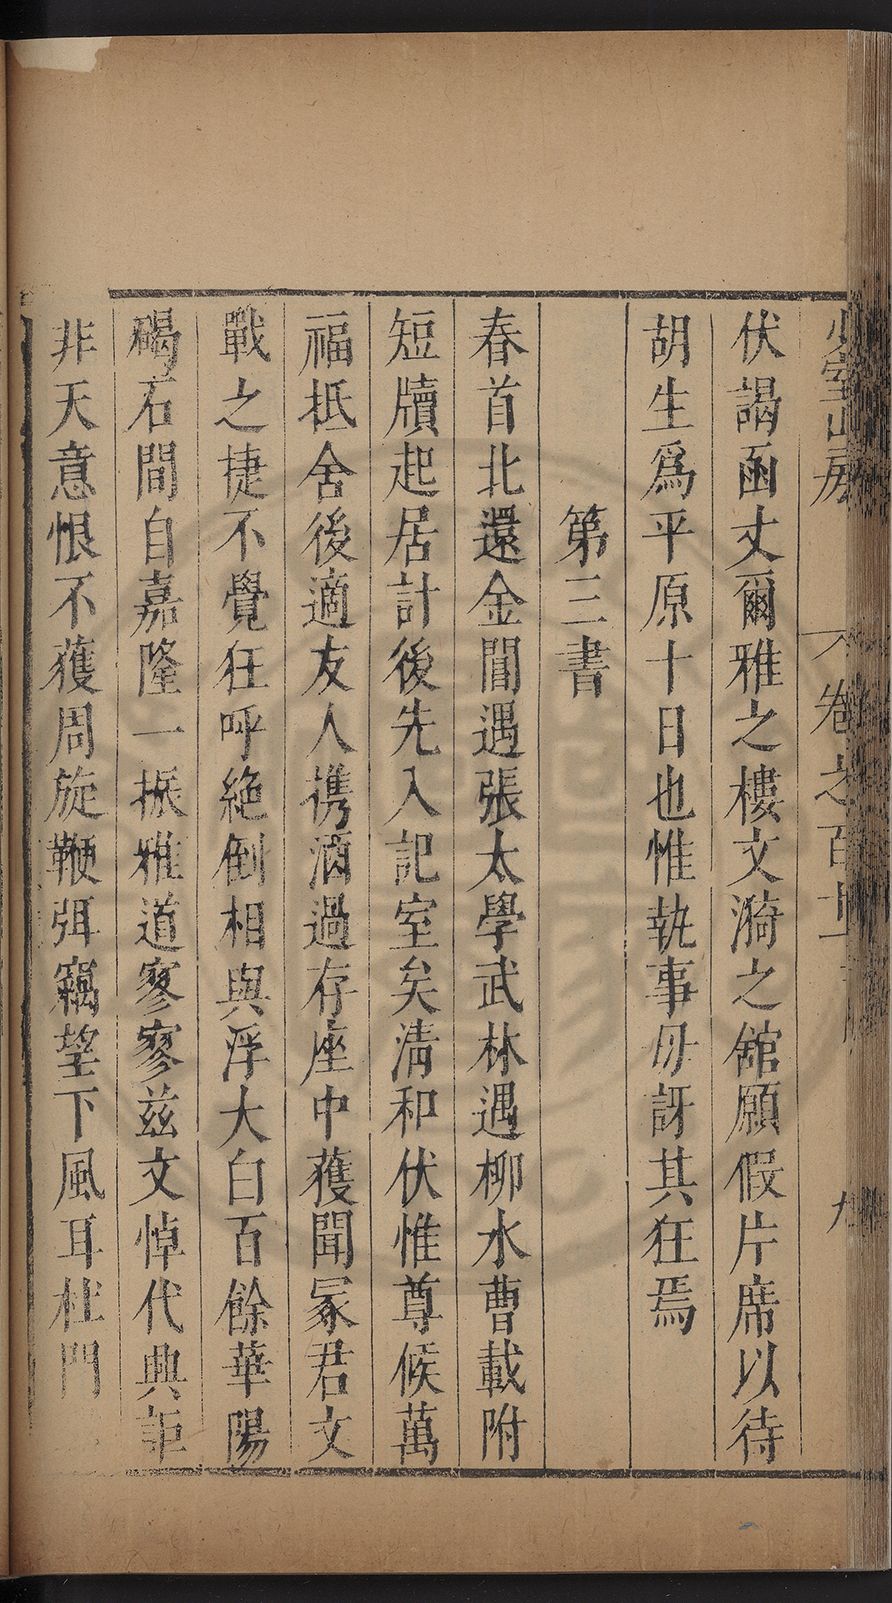 少室山房
卷之百十
九
伏謁函丈爾雅之樓文漪之舘願假片席以待
胡生爲平原十日也惟執事毋訝其狂焉
第三書
春首北還金閶遇張太學武林遇柳水曹載附
短牘起居計後先入記室矣清和伏惟尊候萬
福抵舍後適友人携酒過存座中獲聞冡君文
戰之捷不覺狂呼絶倒相與浮大白百餘華陽
碣石間自嘉隆一振雅道寥寥兹文悼代典詎
非天意恨不獲周旋鞭弭竊望下風耳杜門